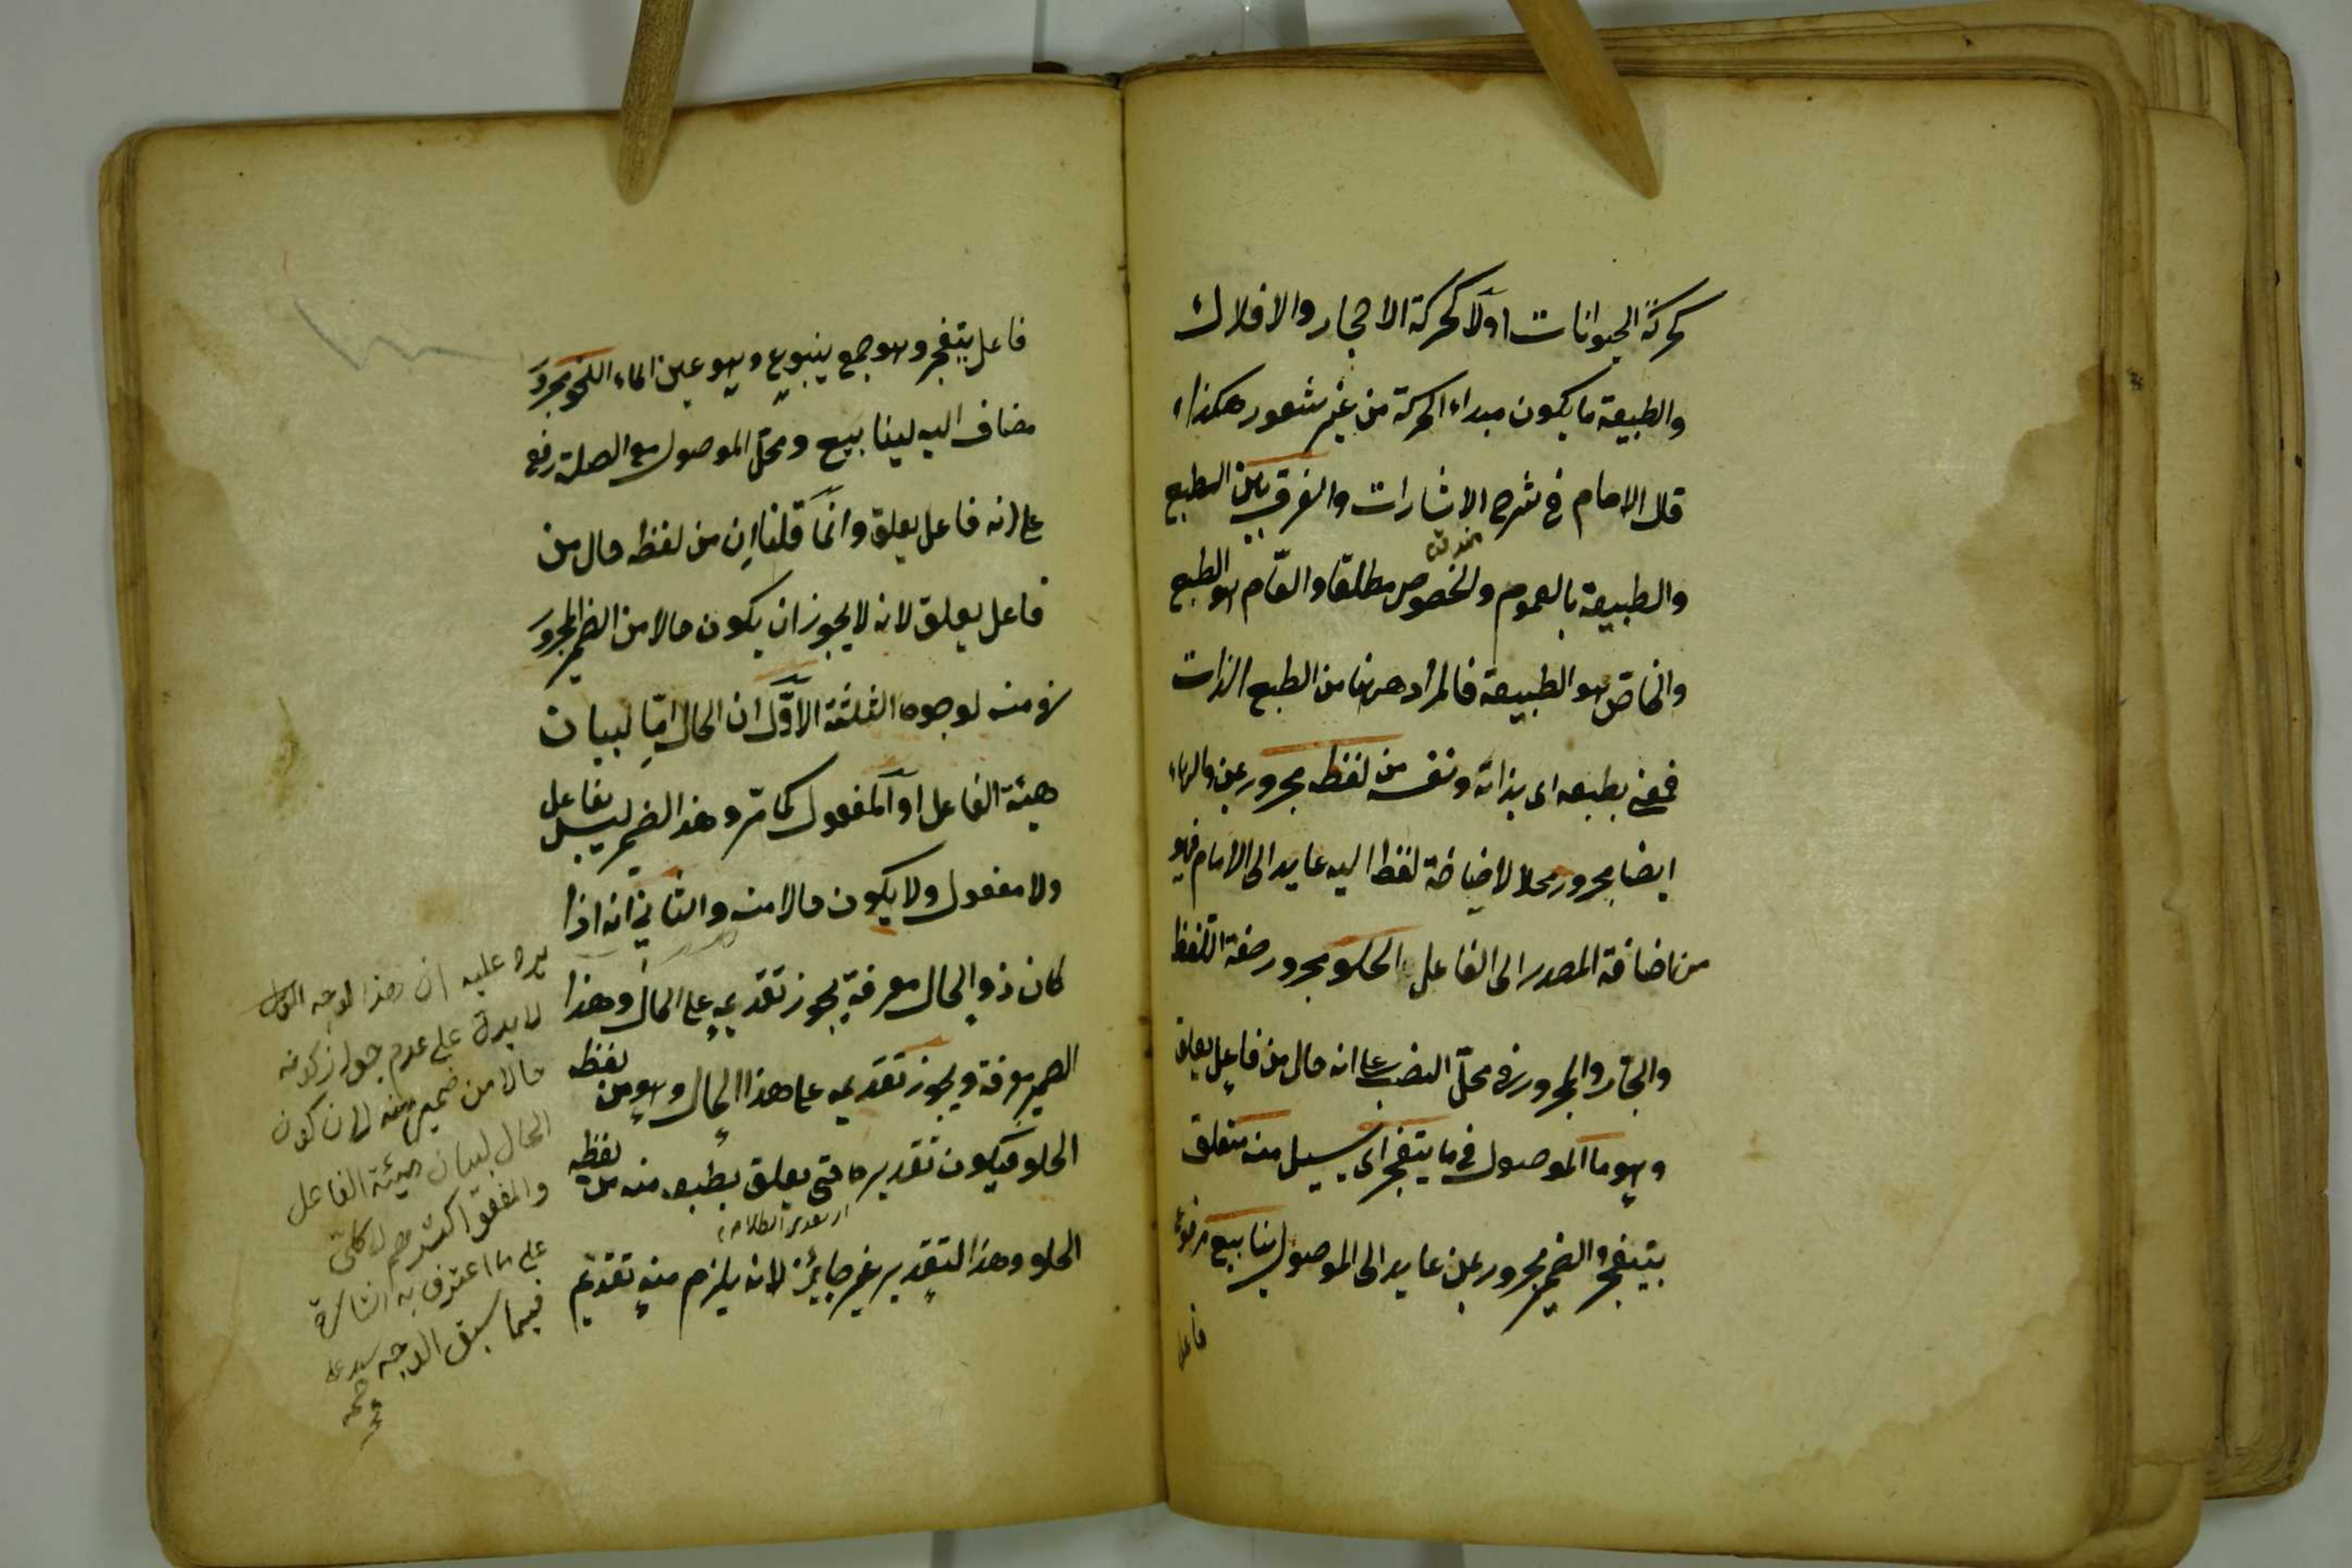 كحركة الحيوانات اولا كحركة الاحجار والافلاك
والطبيعة ما يكون مبداء الحركة من غير شعور هكذا
قال الامام في شرح الاشارات والفرق بين الطبع
والطبيعة بالعموم والخصوص مطلقا والعام هو الطبع
والخاص هو الطبيعة فالمراد ههنا من الطبع الذات
فمعنى بطبعه اى بذاته ونفسه من لفظه مجرور بمن والهاء
ايضا مجرور محلا لاضافة لفظ اليه عايد الى الامام فهو
من اضافة المصدر الى الفاعل الحلو مجرور صفة اللفظ
والجار والمجرور في محل النصب على انه حال من فاعل يعلق
وهو ما الموصول في ما يتفجر اى يسيل منه متعلق
بيتفجر والضمير مجرور بمن عايد الى الموصول ينابيع مرفوع
فاعل
فاعل يتفجر وهو جمع ينبوع وهو عين الماء النحو مجرور
مضاف اليه لينابيع ومحل الموصول مع الصلة رفع
على انه فاعل يعلق وانما قلنا ان من لفظه حال من
فاعل يعلق لانه لا يجوز ان يكون حالا من الضمير المجرور
في منه لوجوه الثلثة الاول ان الحال اما لبيان
هيئة الفاعل او المفعول كما مر وهذا الضمير ليس بفاعل
ولا مفعول ولا يكون حالا منه والثاني انه اذا
كان ذو الحال معرفة يجوز تقديمه على الحال وهذا
الضمير معرفة ويجوز تقديمه على هذا الحال وهو من لفظه
الحلو فيكون تقديره حتى يعلق بطبعه منه من لفظه
الحلو وهذا التقدير غير جايز لانه يلزم منه تقديم
يرد عليه ان هذا الوجه الاول
لا يدل على عدم جواز كونه
حالا من ضمير منه لان كون
الحال لبيان هيئة الفاعل
والمفعول اكثرى لا كلى
على ما اعترف به الشارح
فيما سبق